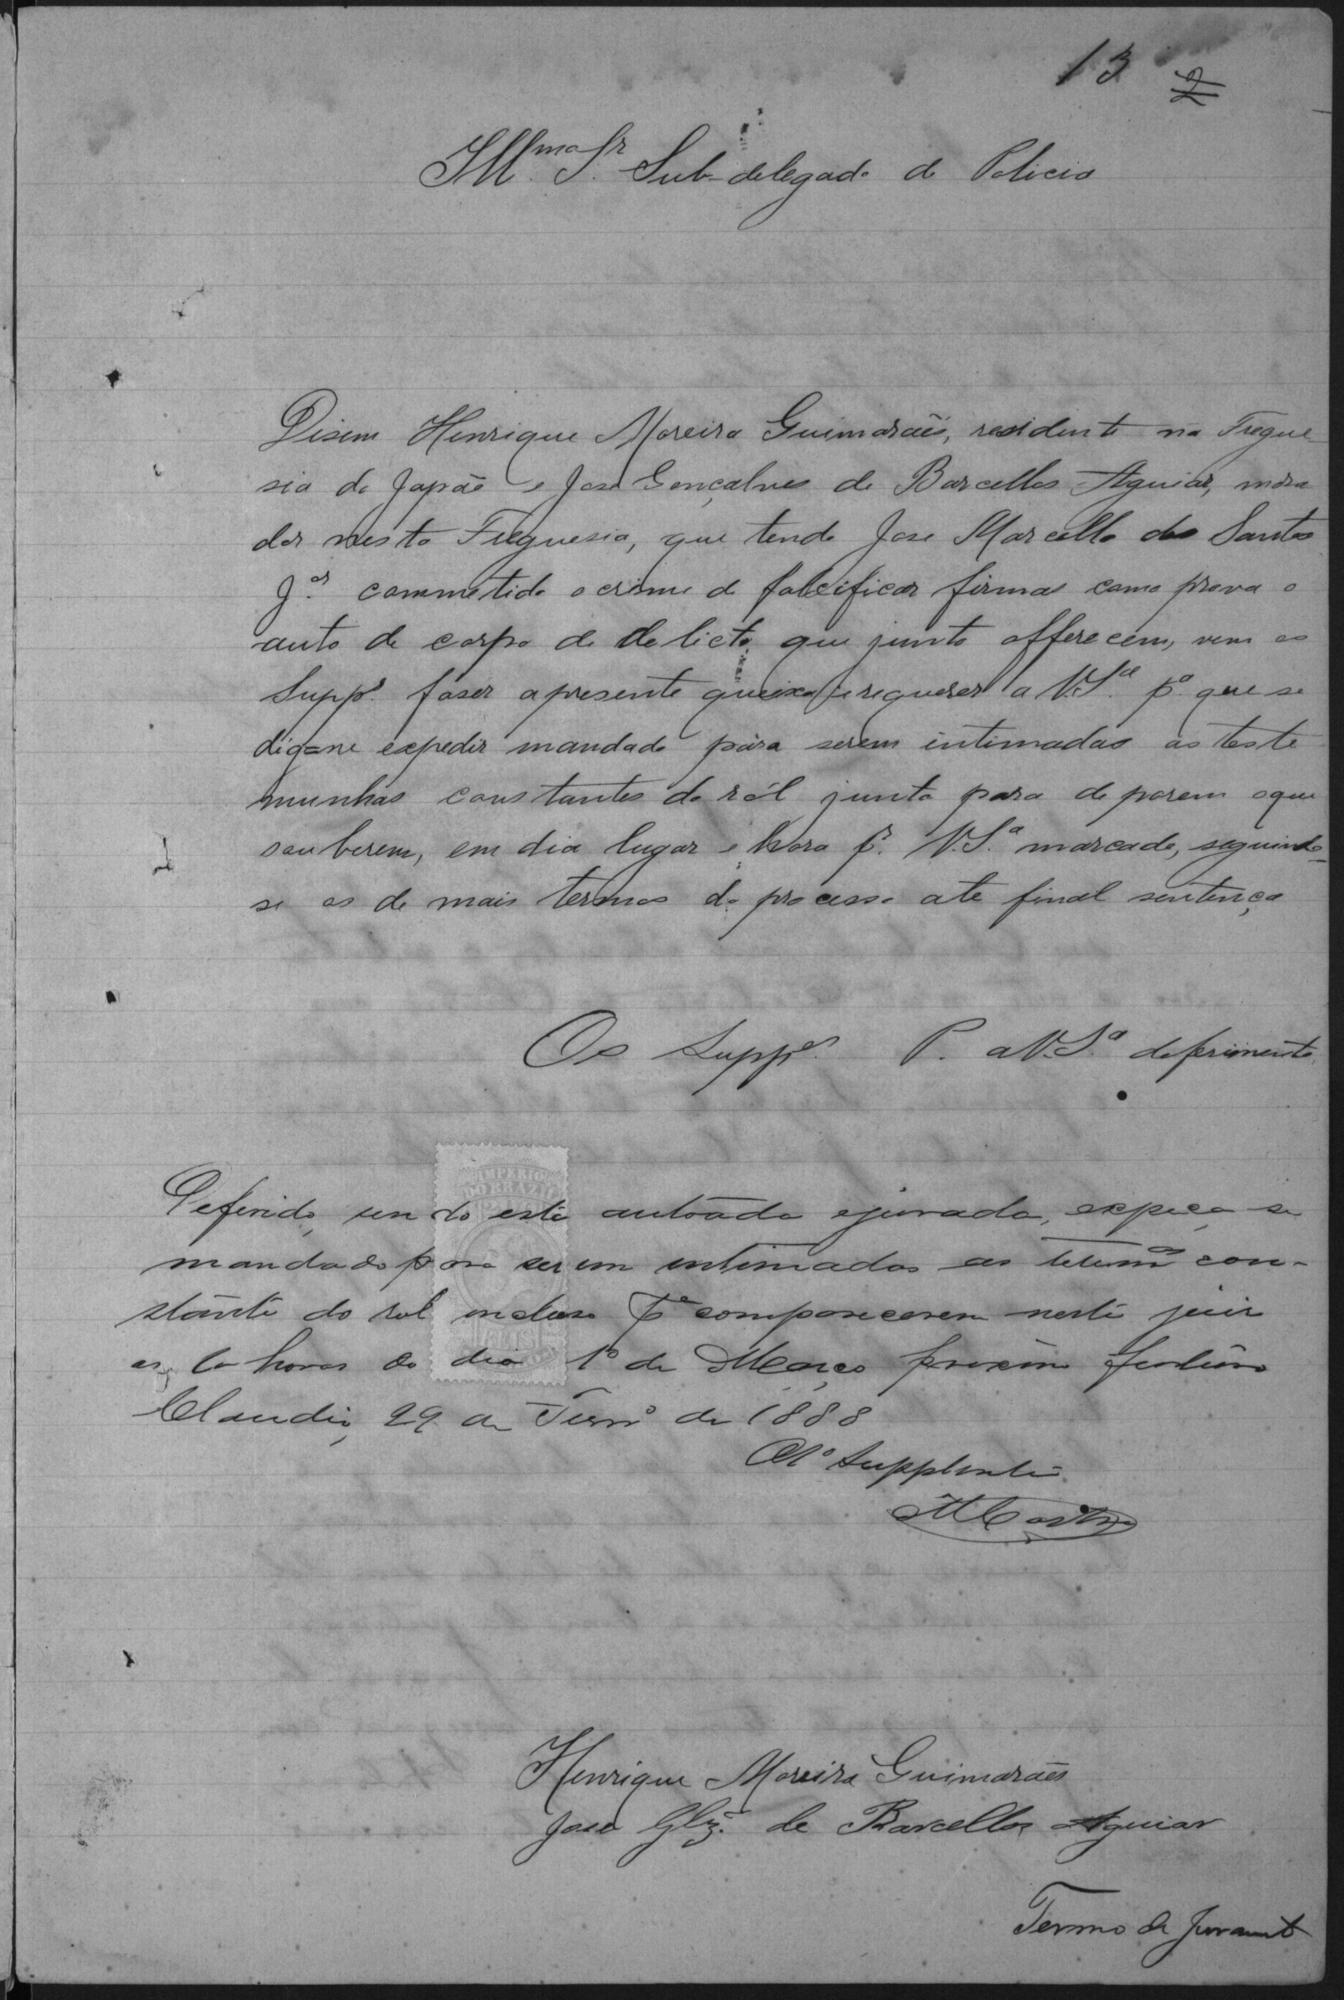 13 2
Illmo Sr Sub-delegado de Policia
Disem Henrique Moreira Guimarães, residente na Fregue
sia do Japão e José Gonçalves de Barcellos Aguiar, mora
dor nesta Freguesia, que tendo Jose Marcello dos Santos
Jor commettido o crime de falcificar firmas como prova o
auto de corpo de delicto que junto offerecem, vem os
Suppes faser a presente queixa e requerer a V.Sa pa que se
digne expedir mandado para serem intimadas as teste
munhas constantes do ról junto para deporem o que
souberem, em dia lugar e hora pr. V.Sa marcado, seguindo-
se os de mais termos do processo até final sentença
Os Suppes P. a V.Sa deferimento
IMPERIO DO BRAZIL
Deferido, sendo esta autoada e jurada, expeça se
mandado para serem intimados as testemas con-
stante do rol incluso pa comparecerem neste juiso
as horas do dia 1o de Março proximo futuro
Claudio, 29 de Fevro de 1888
O 1o Supplente
Henrique Moreira Guimarães
José Glz. de Barcellos Aguiar
Termo de Juramto